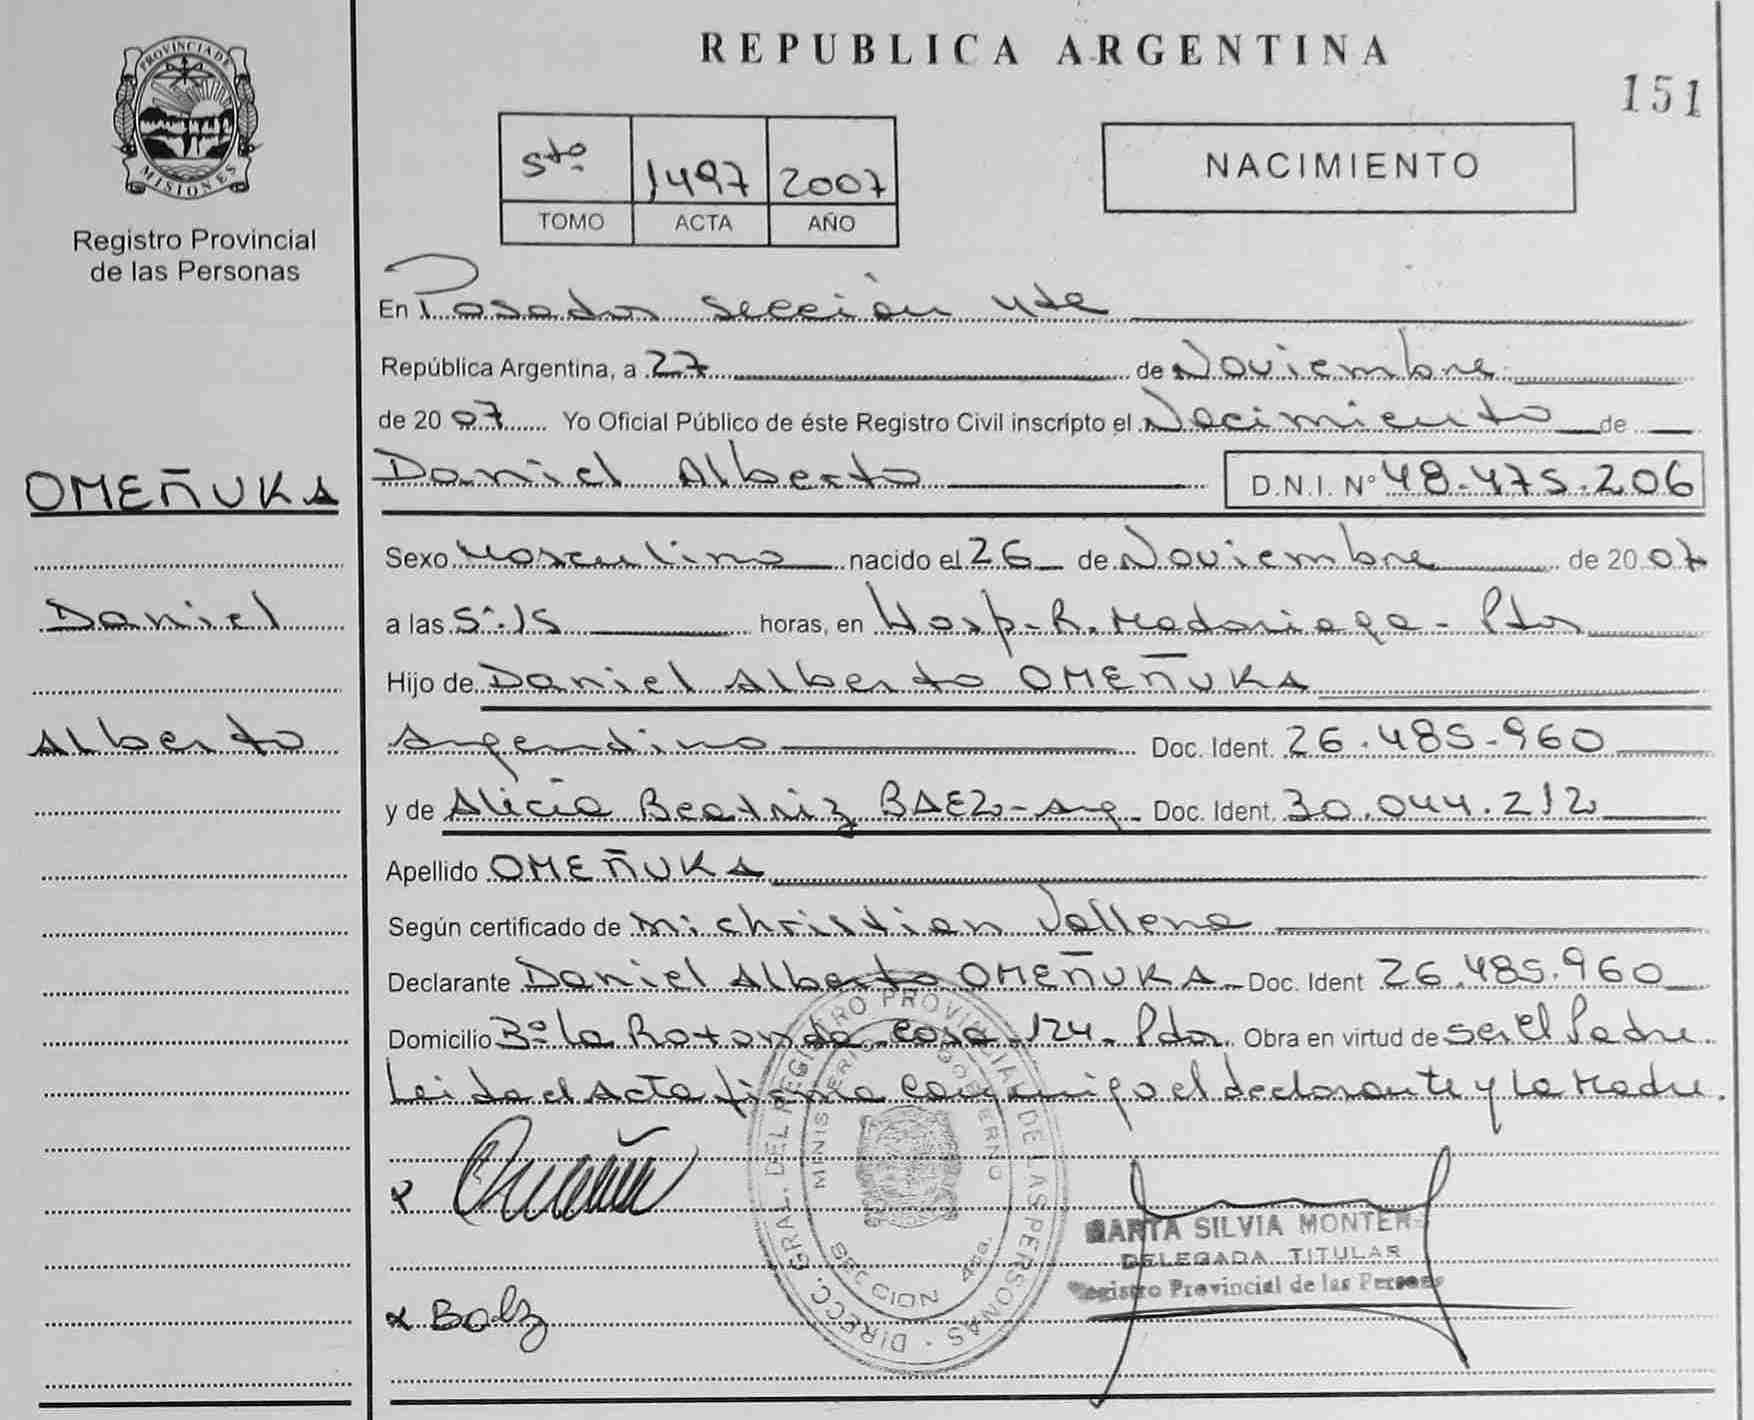 PROVINCIA DE
MISIONES
Registro Provincial
de las Personas
OMEÑUKA
Daniel
Alberto
REPUBLICA ARGENTINA
151
5to 1497 2007
TOMO ACTA AÑO
NACIMIENTO
En Posadas sección 4ta
República Argentina, a 27 de Noviembre
de 2007 Yo Oficial Público de éste Registro Civil inscripto el Nacimiento de
Daniel Alberto D.N.I. N° 48.475.206
Sexo Masculino nacido el 26 de Noviembre de 2007
a las 5:15 horas, en Hosp. R. Madariaga - Pdas
Hijo de Daniel Alberto OMEÑUKA
Argentino Doc. Ident. 26.485.960
y de Alicia Beatriz BAEZ - Arg. Doc. Ident. 30.044.212
Apellido OMEÑUKA
Según certificado de Michristian Vallena
Declarante Daniel Alberto OMEÑUKA - Doc. Ident 26.485.960
Domicilio B° La Rotonda casa 124 - Pdas. Obra en virtud de ser el Padre.
Leida el Acta firma conmigo el declarante y la Madre.
DIRECC. GRAL. DEL REGISTRO PROVINCIAL DE LAS PERSONAS
MINISTERIO GOBIERNO
SECCION 4ta.
MARTA SILVIA MONTER
DELEGADA TITULAR
Registro Provincial de las Personas